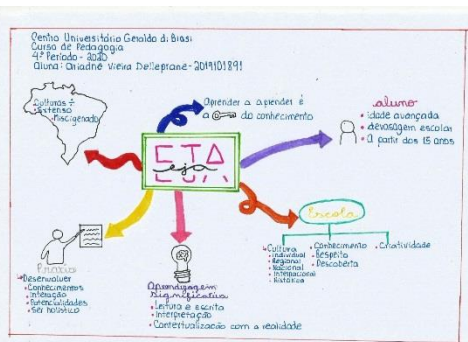 Centro Universitário Geraldo di Biasi
Curso de Pedagogia
4º Período - 2020
Aluna: Ariadne Vieira Delleprane - 2019101891
Culturas ÷
Extenso
Miscigenado
Aprender a aprender é
a do conhecimento
aluno
idade avançada
defasagem escolas
a partir dos 15 anos
EJA
eja
Escola
Cultura
Individual
Regional
Nacional
Internacional
Histórica
Conhecimento
Respeito
Descoberta
Criatividade
Desenvolver
Conhecimentos
Interação
Potencialidades
Ser holístico
Aprendizagem
Significativa
Leitura e escrita
Interpretação
Contextualização com a realidade